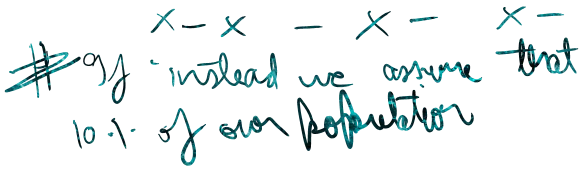 x - x - x - x -
# If instead we assume that
10 % of our population